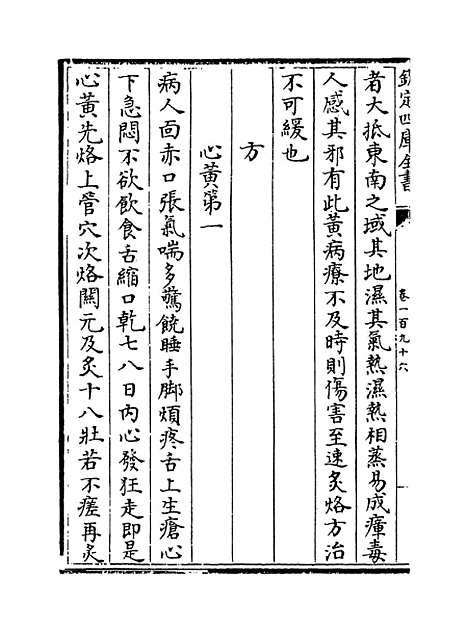 欽定四庫全書
卷一百九十六
者大抵東南之域其地濕其氣熱濕熱相蒸易成瘴毒
人感其邪有此黃病療不及時則傷害至速炙烙方治
不可緩也
方
心黃第一
病人面赤口張氣喘多驚饒睡手脚煩疼舌上生瘡心
下急悶不欲飲食舌縮口乾七八日内心發狂走即是
心黃先烙上管穴次烙關元及炙十八壯若不瘥再炙